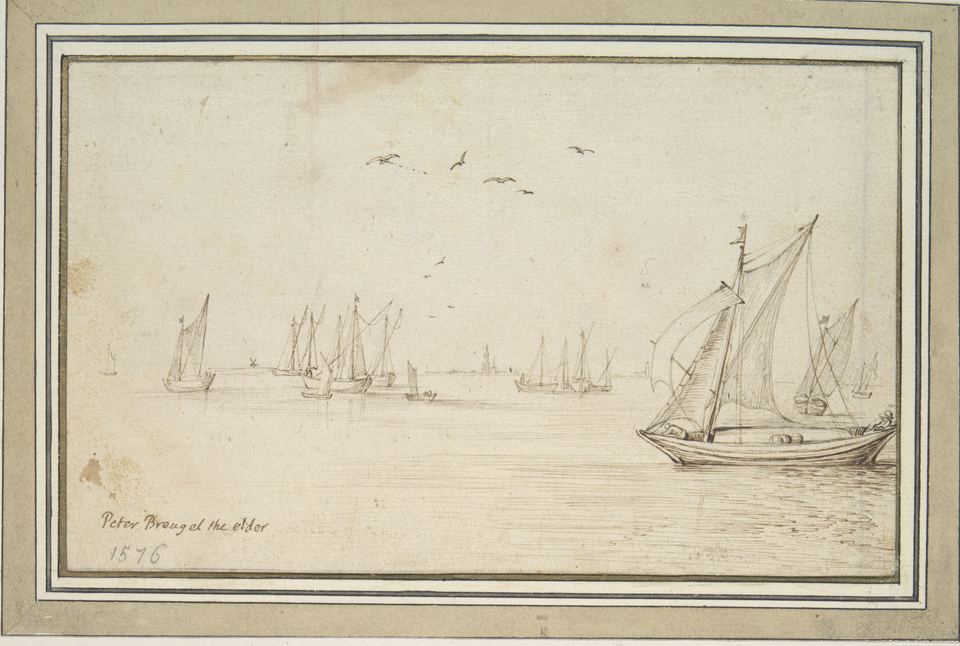 Peter Breugel the elder
1576